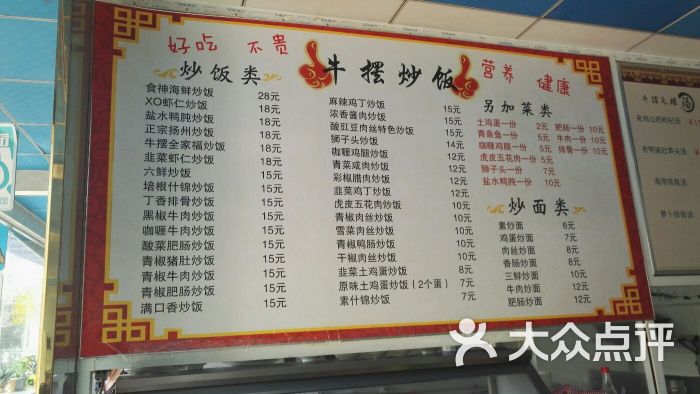 好吃 不贵
牛摆炒饭
营养 健康
炒饭类
食神海鲜炒饭 28元
XO虾仁炒饭 18元
盐水鸭肫炒饭 18元
正宗扬州炒饭 18元
牛摆全家福炒饭 18元
韭菜虾仁炒饭 18元
六鲜炒饭 15元
培根什锦炒饭 15元
丁香排骨炒饭 15元
黑椒牛肉炒饭 15元
咖喱牛肉炒饭 15元
酸菜肥肠炒饭 15元
青椒猪肚炒饭 15元
青椒牛肉炒饭 15元
青椒肥肠炒饭 15元
满口香炒饭 15元
麻辣鸡丁炒饭 15元
浓香酱肉炒饭 15元
酸豇豆肉丝特色炒饭 15元
狮子头炒饭 14元
咖喱鸡腿炒饭 14元
青菜咸肉炒饭 12元
彩椒腊肉炒饭 12元
韭菜鸡丁炒饭 12元
虎皮五花肉炒饭 12元
青椒肉丝炒饭 10元
雪菜肉丝炒饭 10元
青椒鸭肠炒饭 10元
干椒肉丝炒饭 10元
韭菜土鸡蛋炒饭 8元
原味土鸡蛋炒饭（2个蛋） 7元
素什锦炒饭 7元
另加菜类
土鸡蛋一份 2元 肥肠一份 10元
青条鱼一份 5元 牛肉一份 10元
咖喱鸡腿一份 6元 排骨一份 10元
虎皮五花肉一份 5元
狮子头一份 7元
盐水鸭肫一份 10元
炒面类
素炒面 6元
鸡蛋炒面 7元
肉丝炒面 8元
香肠炒面 8元
三鲜炒面 10元
牛肉炒面 12元
肥肠炒面 12元
大众点评